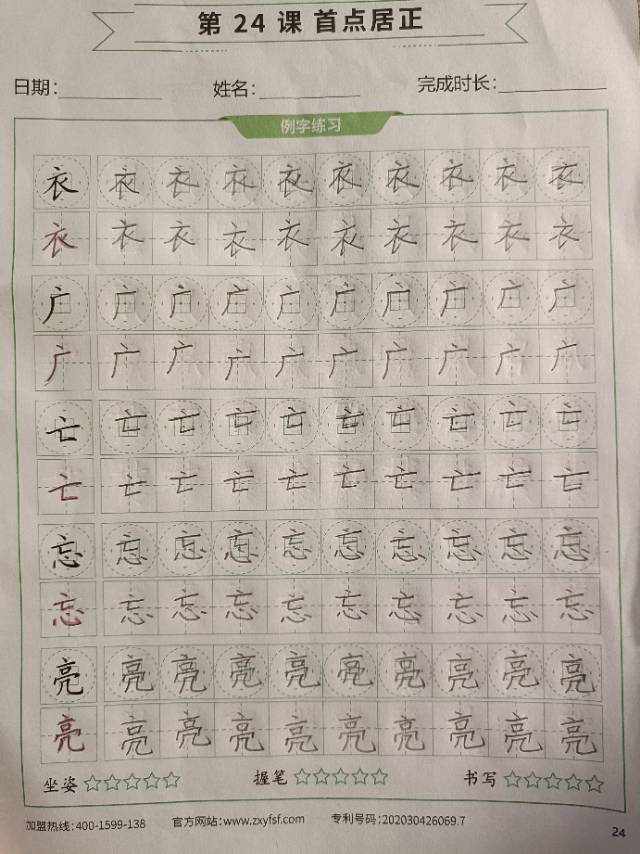 第 24 课 首点居正
日期: 姓名: 完成时长:
例字练习
衣 衣 衣 衣 衣 衣 衣 衣 衣 衣
衣 衣 衣 衣 衣 衣 衣 衣 衣 衣
广 广 广 广 广 广 广 广 广 广
广 广 广 广 广 广 广 广 广 广
亡 亡 亡 亡 亡 亡 亡 亡 亡 亡
亡 亡 亡 亡 亡 亡 亡 亡 亡 亡
忘 忘 忘 忘 忘 忘 忘 忘 忘 忘
忘 忘 忘 忘 忘 忘 忘 忘 忘 忘
亮 亮 亮 亮 亮 亮 亮 亮 亮 亮
亮 亮 亮 亮 亮 亮 亮 亮 亮 亮
坐姿 ☆☆☆☆☆ 握笔 ☆☆☆☆☆ 书写 ☆☆☆☆☆
加盟热线:400-1599-138 官方网站:www.zxyfsf.com 专利号码:202030426069.7
24